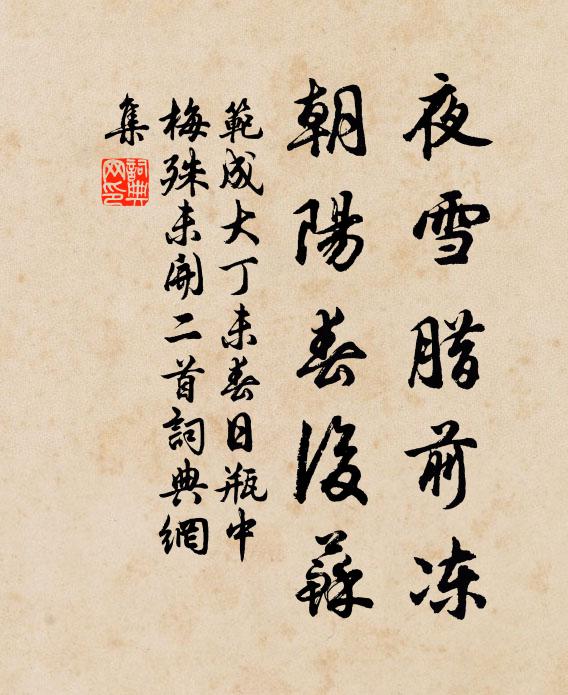 夜雪腊前冻
朝陽春後蘇
範成大丁未春日瓶中
梅殊未開二首詞典網
集
詞典
网印